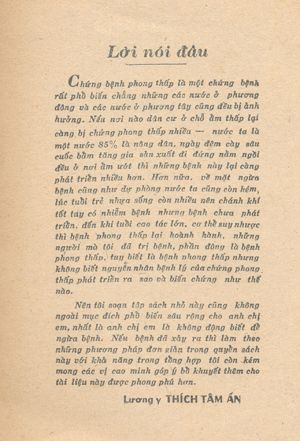 Lời nói đầu
Chứng bệnh phong thấp là một chứng bệnh
rất phổ biến chẳng những các nước ở phương
đông và các nước ở phương tây cũng đều bị ảnh
hưởng. Nếu nơi nào dân cư ở chỗ ẩm thấp lại
càng bị chứng phong thấp nhiều — nước ta là
một nước 85% là nông dân, ngày đêm cày sâu
cuốc bẫm tăng gia sản xuất đi đứng nằm ngồi
đều ở nơi ẩm ướt thì những bệnh này lại càng
phát triển nhiều hơn. Hơn nữa, về mặt ngừa
bệnh cũng như dự phòng nước ta cũng còn kém,
lúc tuổi trẻ nhựa sống còn nhiều nên chánh khí
tốt tay có nhiễm bệnh nhưng bệnh chưa phát
triển, đến khi tuổi cao tác lớn, cơ thể suy nhược
thì bệnh phong thấp lại hoành hành, những
người mà tôi đã trị bệnh, phần đông là bệnh
phong thấp, tuy biết là bệnh phong thấp nhưng
không biết nguyên nhân bệnh lý của chứng phong
thấp phát triển ra sao và biến chứng như thế
nào.
Nên tôi soạn tập sách nhỏ này cũng không
ngoài mục đích phổ biến sâu rộng cho anh chị
em, nhất là anh chị em là không động biết để
ngừa bệnh. Nếu bệnh đã xảy ra thì làm theo
những phương pháp đơn giản trong quyển sách
này với khả năng trong tầng hợp tôi còn kém
mong các vị cao minh góp ý bổ khuyết thêm cho
tài liệu này được phong phú hơn.
Lương y THÍCH TÂM ẤN